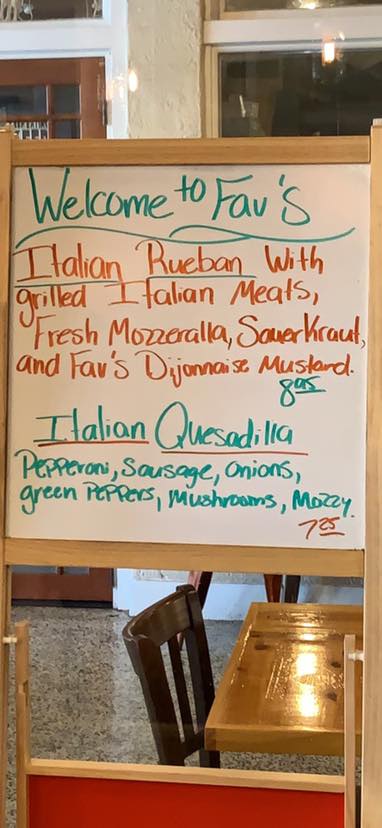 Welcome to Fav's
Italian Rueban With
grilled Italian Meats,
Fresh Mozzeralla, SauerKraut,
and Fav's Dijonnaise Mustard.
8.95
Italian Quesadilla
Pepperoni, Sausage, onions,
green Peppers, Mushrooms, Mozzy.
7.25